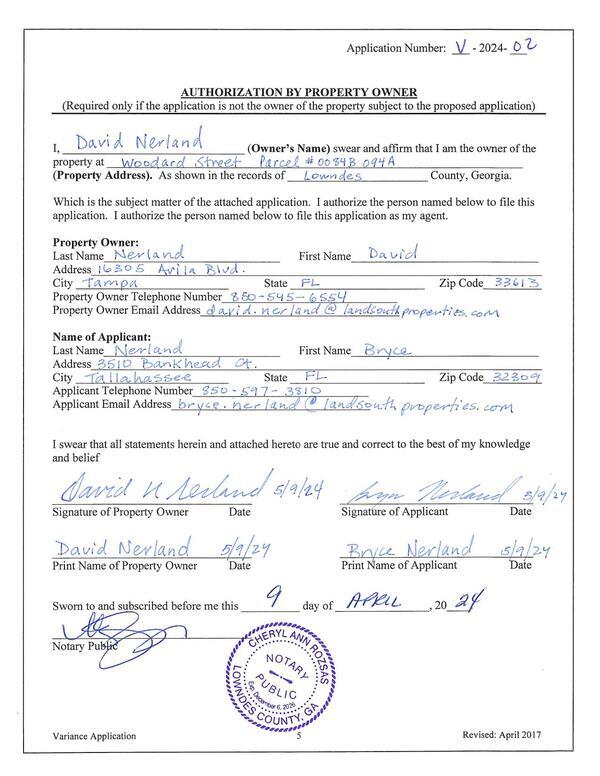 Application Number: V - 2024-02
AUTHORIZATION BY PROPERTY OWNER
(Required only if the application is not the owner of the property subject to the proposed application)
I, David Nerland (Owner's Name) swear and affirm that I am the owner of the
property at Woodard Street Parcel #0084B 094A
(Property Address). As shown in the records of Lowndes County, Georgia.
Which is the subject matter of the attached application. I authorize the person named below to file this
application. I authorize the person named below to file this application as my agent.
Property Owner:
Last Name Nerland First Name David
Address 16305 Avila Blvd.
City Tampa State FL Zip Code 33613
Property Owner Telephone Number 850-545-6554
Property Owner Email Address david.nerland@landsouthproperties.com
Name of Applicant:
Last Name Nerland First Name Bryce
Address 3510 Bankhead Ct.
City Tallahassee State FL Zip Code 32309
Applicant Telephone Number 850-597-3810
Applicant Email Address bryce.nerland@landsouthproperties.com
I swear that all statements herein and attached hereto are true and correct to the best of my knowledge
and belief
David N Nerland 5/9/24 Bryce Nerland 5/9/24
Signature of Property Owner Date Signature of Applicant Date
David Nerland 5/9/24 Bryce Nerland 5/9/24
Print Name of Property Owner Date Print Name of Applicant Date
Sworn to and subscribed before me this 9 day of APRIL, 2024
Notary Public
CHERYL ANN ROZSAS
NOTARY
PUBLIC
Exp. December 6, 2026
LOWNDES COUNTY, GA
Variance Application 5 Revised: April 2017